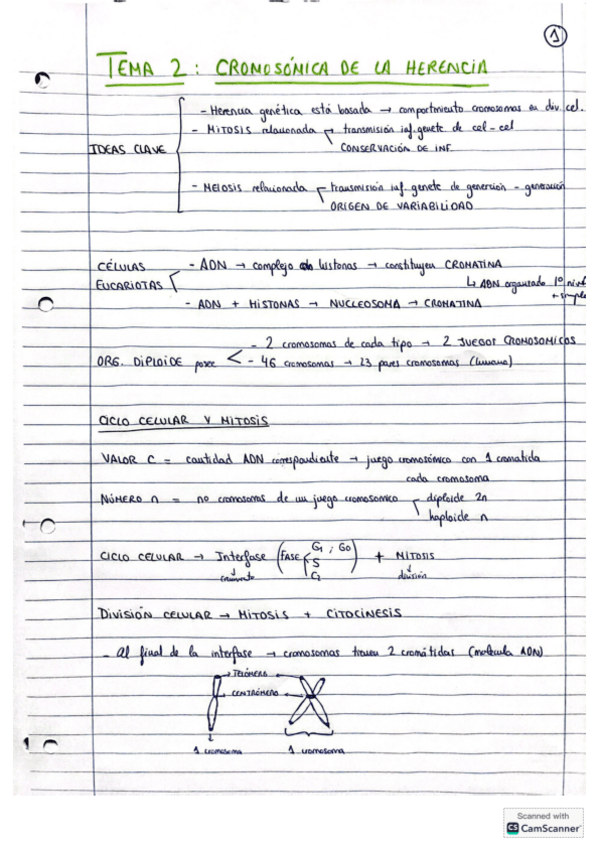 1
TEMA 2: CROMOSÓMICA DE LA HERENCIA
- Herencia genética está basada → comportmiento cromosomas en div. cel.
IDEAS CLAVE
- MITOSIS relacionada → transmisión inf. genete de cel - cel
CONSERVACIÓN DE INF.
- MEIOSIS relacionada → transmisión inf. genete de generción - generación
ORIGEN DE VARIABILIDAD
CÉLULAS EUCARIOTAS
- ADN → complejo histonas → constituyen CROMATINA
↳ ADN organizado 1º nivel
+ simple
- ADN + HISTONAS → NUCLEOSOMA → CROMATINA
ORG. DIPLOIDE posee
- 2 cromosomas de cada tipo → 2 JUEGOS CROMOSOMICOS
- 46 cromosomas → 23 pares cromosomas (humano)
CICLO CELULAR Y MITOSIS
VALOR C = cantidad ADN correspondiente → juego cromosómico con 1 cromatida
cada cromosoma
NÚMERO n = no cromosomas de un juego cromosomico
diploide 2n
haploide n
CICLO CELULAR → Interfase (FASE G1 ; G0
S
G2) + MITOSIS
división
DIVISIÓN CELULAR → MITOSIS + CITOCINESIS
- Al final de la interfase → cromosomas traen 2 cromátidas (molécula ADN)
→ TELÓMERO
→ CENTRÓMERO
1 cromosoma
1 cromosoma
Scanned with
CS CamScanner